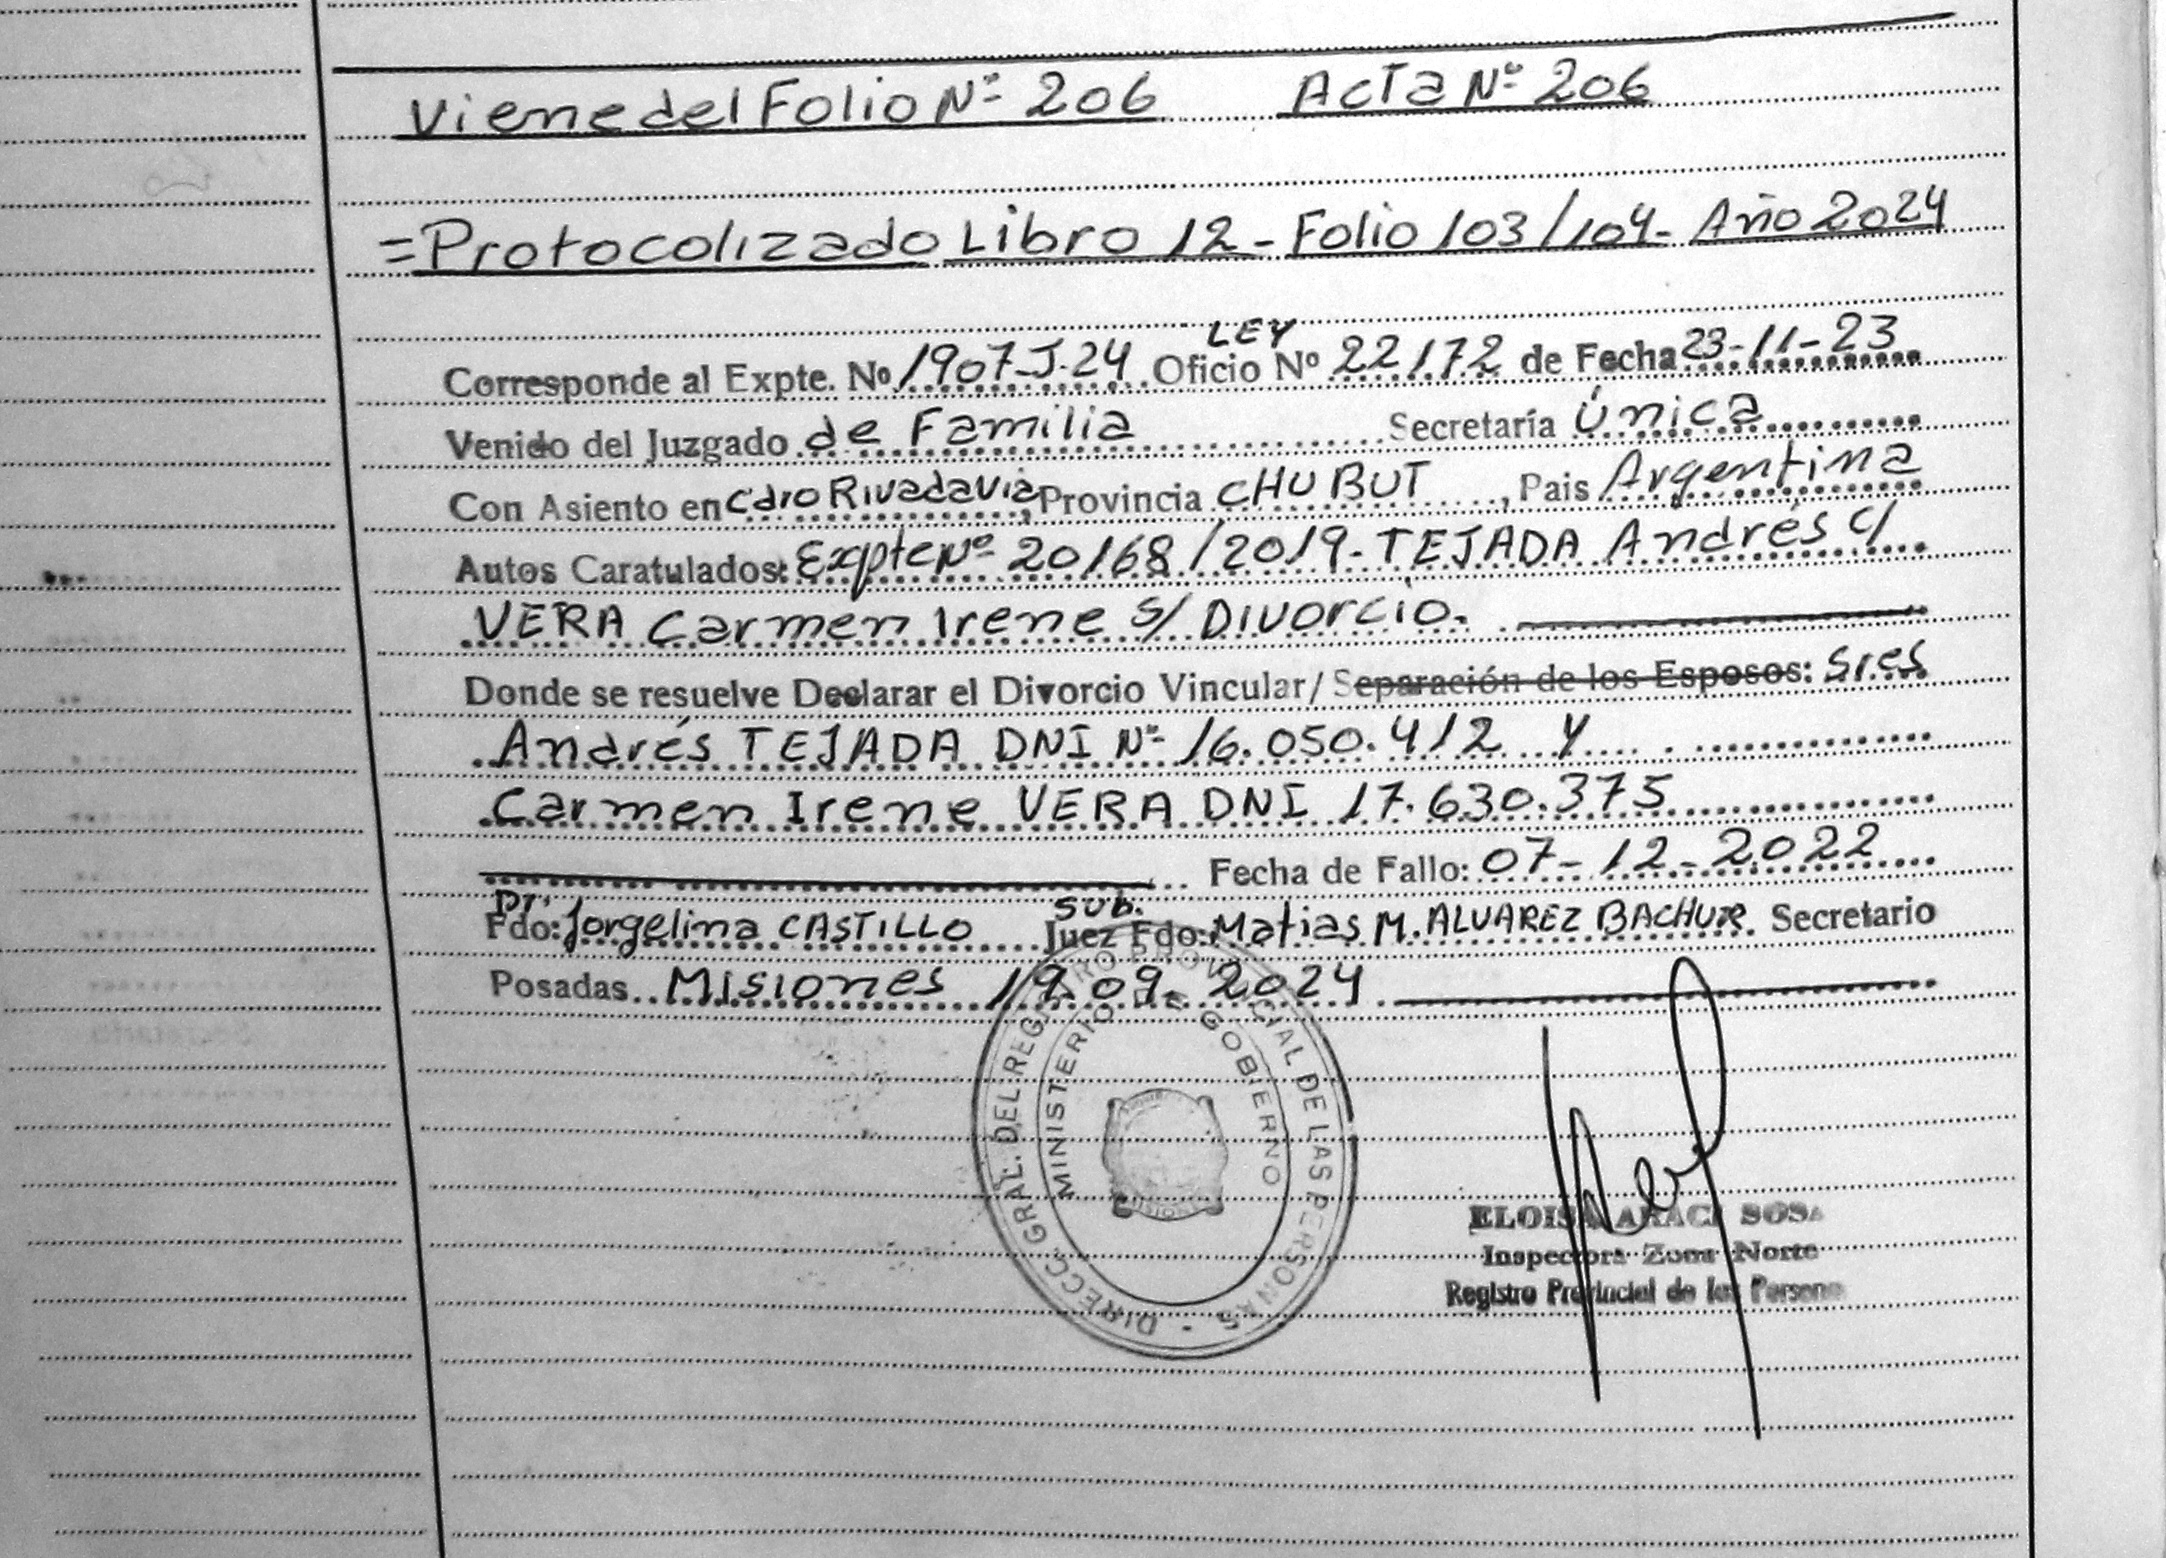 Viene del Folio Nº 206 Acta Nº 206
= Protocolizado Libro 12 - Folio 103/104 - Año 2024
LEY
Corresponde al Expte. Nº 1907-J-24 Oficio Nº 22172 de Fecha 23-11-23
Venido del Juzgado de Familia Secretaría Única
Con Asiento en Cdro Rivadavia, Provincia CHUBUT, Pais Argentina
Autos Caratulados: Expte Nº 20168/2019 - TEJADA Andrés c/
VERA Carmen Irene s/ Divorcio.
Donde se resuelve Declarar el Divorcio Vincular/ Separación de los Esposos: Sres
Andrés TEJADA DNI Nº 16.050.412 Y
Carmen Irene VERA DNI 17.630.375
Fecha de Fallo: 07-12-2022
Sub.
Fdo: Jorgelina CASTILLO Juez Fdo: Matias M. ALVAREZ BACHUR. Secretario
Posadas Misiones 19.09.2024
DIRECC. GRAL. DEL REGISTRO PROVINCIAL DE LAS PERSONAS
MINISTERIO DE GOBIERNO
MISIONES
ELOISA ARACI SOSA
Inspectora Zona Norte
Registro Provincial de las Persona